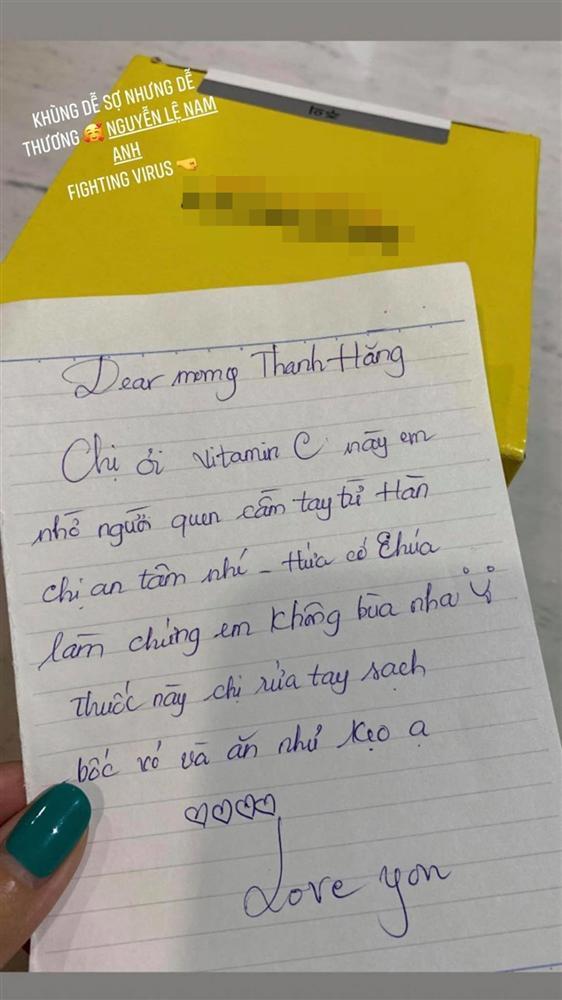 KHÙNG DỄ SỢ NHƯNG DỄ
THƯƠNG 🥰 NGUYỄN LỆ NAM
ANH
FIGHTING VIRUS 🤜
Dear momy Thanh Hằng
Chị ơi vitamin C này em
nhờ người quen cầm tay từ Hàn
chị an tâm nhé - Hứa có Chúa
làm chứng em không bùa nha
thuốc này chị rửa tay sạch
bóc vỏ và ăn như kẹo ạ
♡♡♡♡
Love you